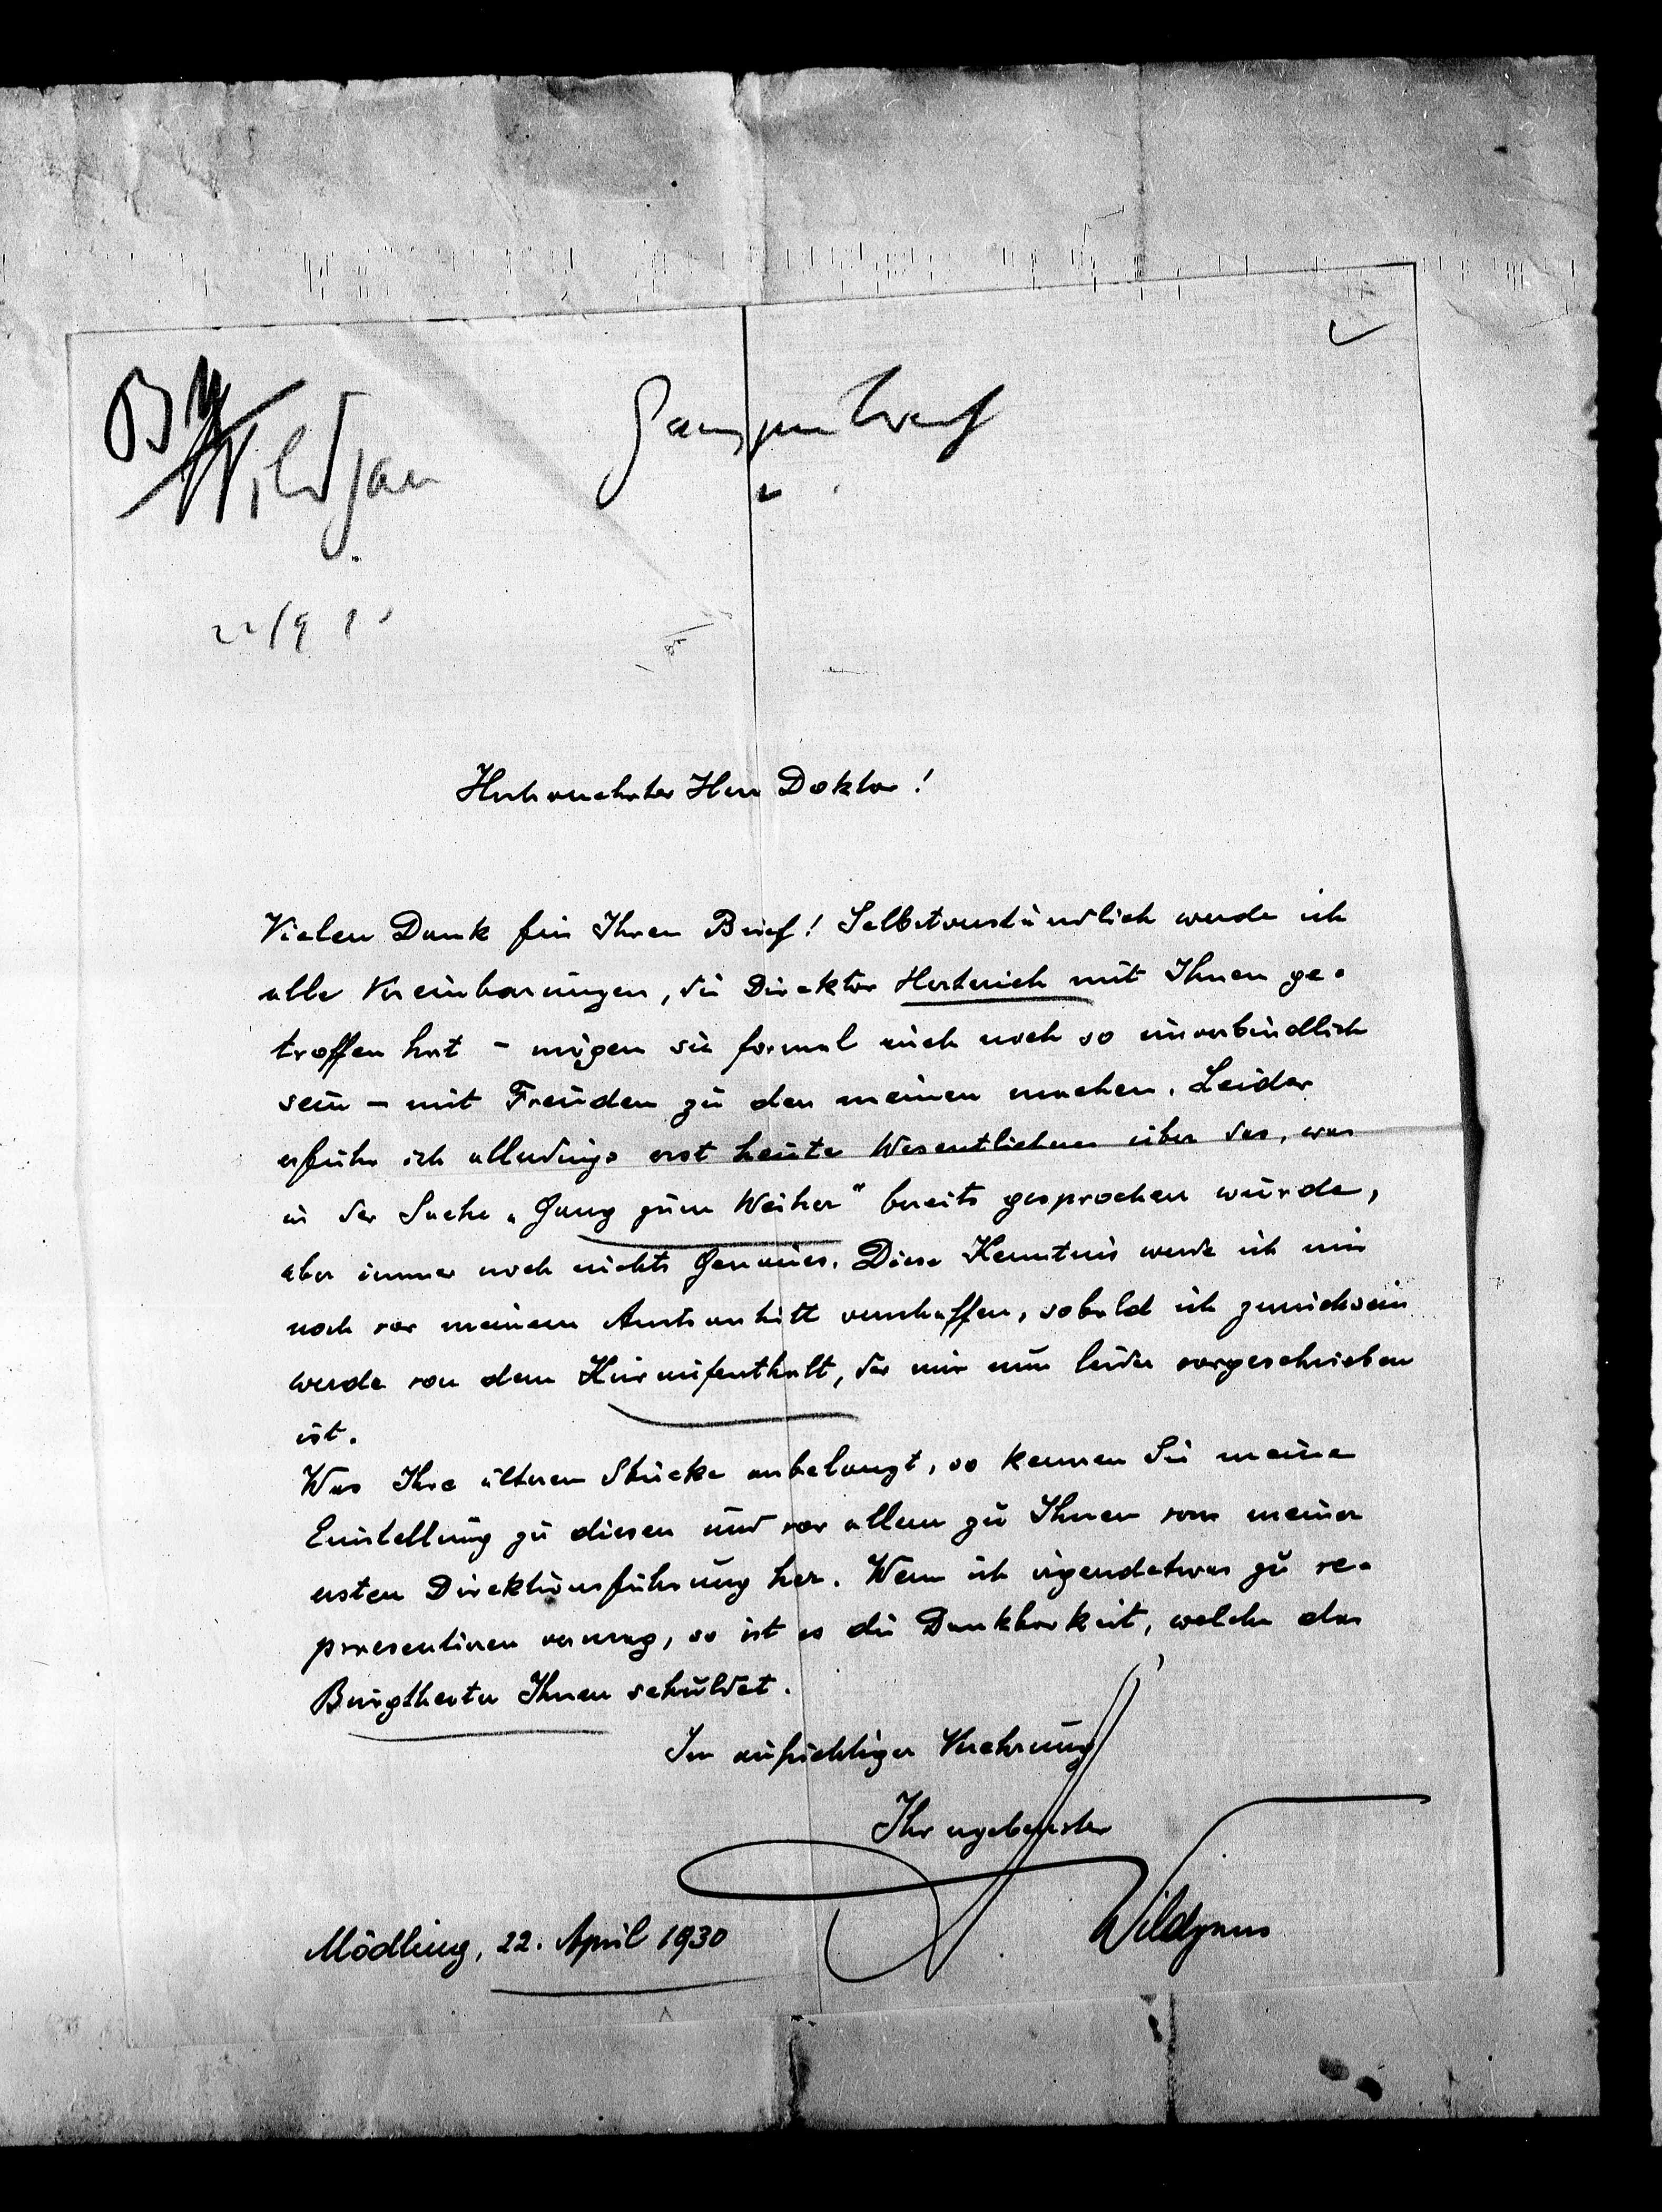 B
Wildgan
22/9
Hochverehrter Herr Doktor!
Vielen Dank für Ihren Brief! Selbstverständlich werde ich
alle Vereinbarungen, die Direktor Herterich mit Ihnen ge-
troffen hat – mögen sie formal auch noch so unverbindlich
sein – mit Freuden zu den meinen machen. Leider
erfuhr ich allerdings erst heute Wesentlicheres über das, was
in der Sache „Gang zum Weiher" bereits gesprochen wurde,
aber immer noch nichts Genaues. Diese Kenntnis werde ich mir
noch vor meinem Amtsantritt verschaffen, sobald ich zurücksein
werde von dem Kuraufenthalt, der mir nun leider vorgeschrieben
ist.
Was Ihre älteren Stücke anbelangt, so kennen Sie meine
Einstellung zu diesen und vor allem zu Ihnen von meiner
ersten Direktionsführung her. Wenn ich irgendetwas zu re-
praesentieren vermag, so ist es die Dankbarkeit, welche das
Burgtheater Ihnen schuldet.
In aufrichtiger Verehrung
Ihr ergebenster
Wildgans
Mödling, 22. April 1930